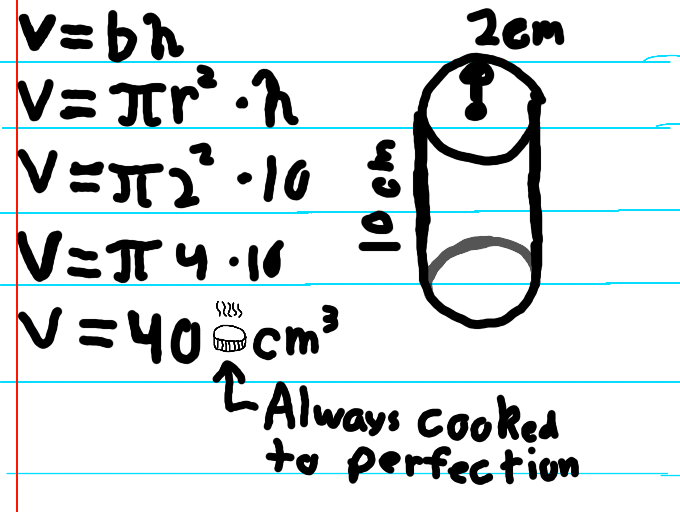 V=bh
V=πr²·h
V=π2²·10
V=π4·10
V=40 cm³
Always cooked
to perfection
2cm
10 cm